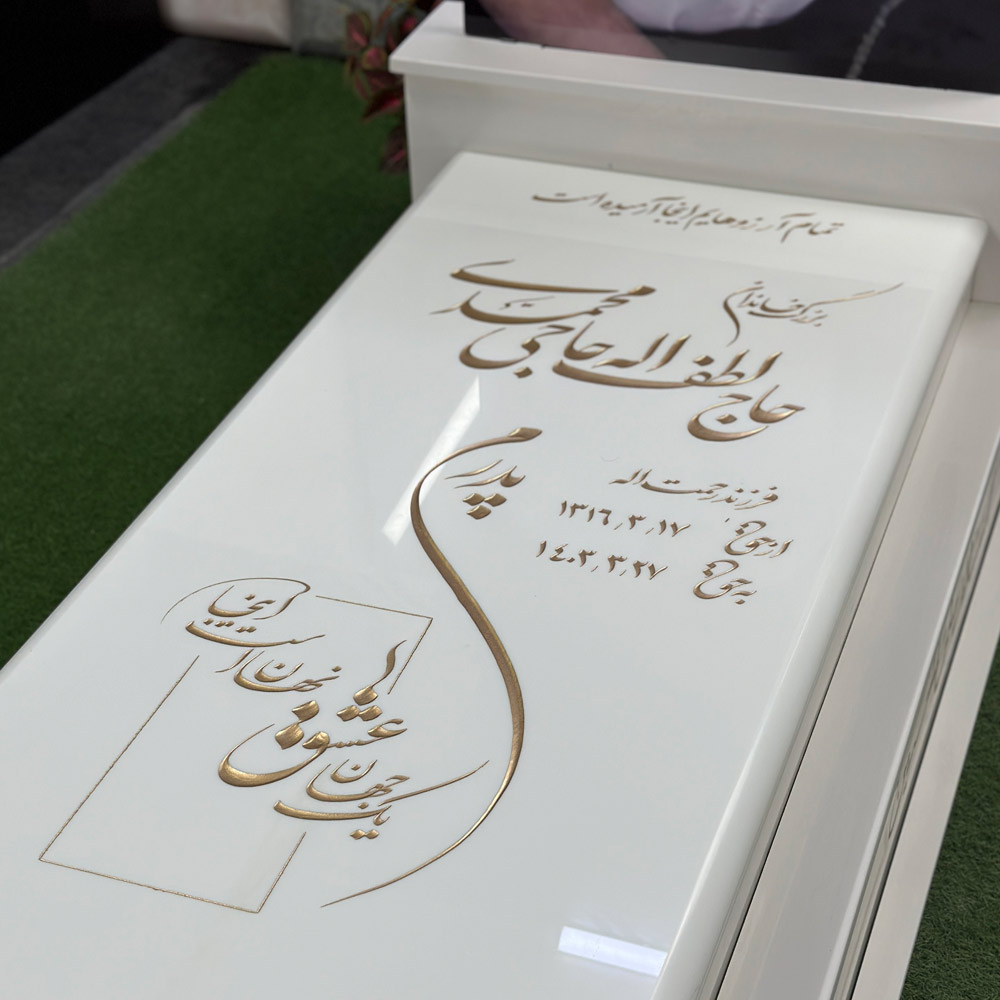 تمام آرزوهایم اینجا آرمیده است
بزرگ خاندان
حاج لطف اله حاجی محمدی
فرزند رحمت اله
از حیاط ۱۳۱۶٫۳٫۱۷
به حیاط ۱۴۰۳٫۳٫۲۷
پدرم
یک جهان
عشق
نهان است
اینجا